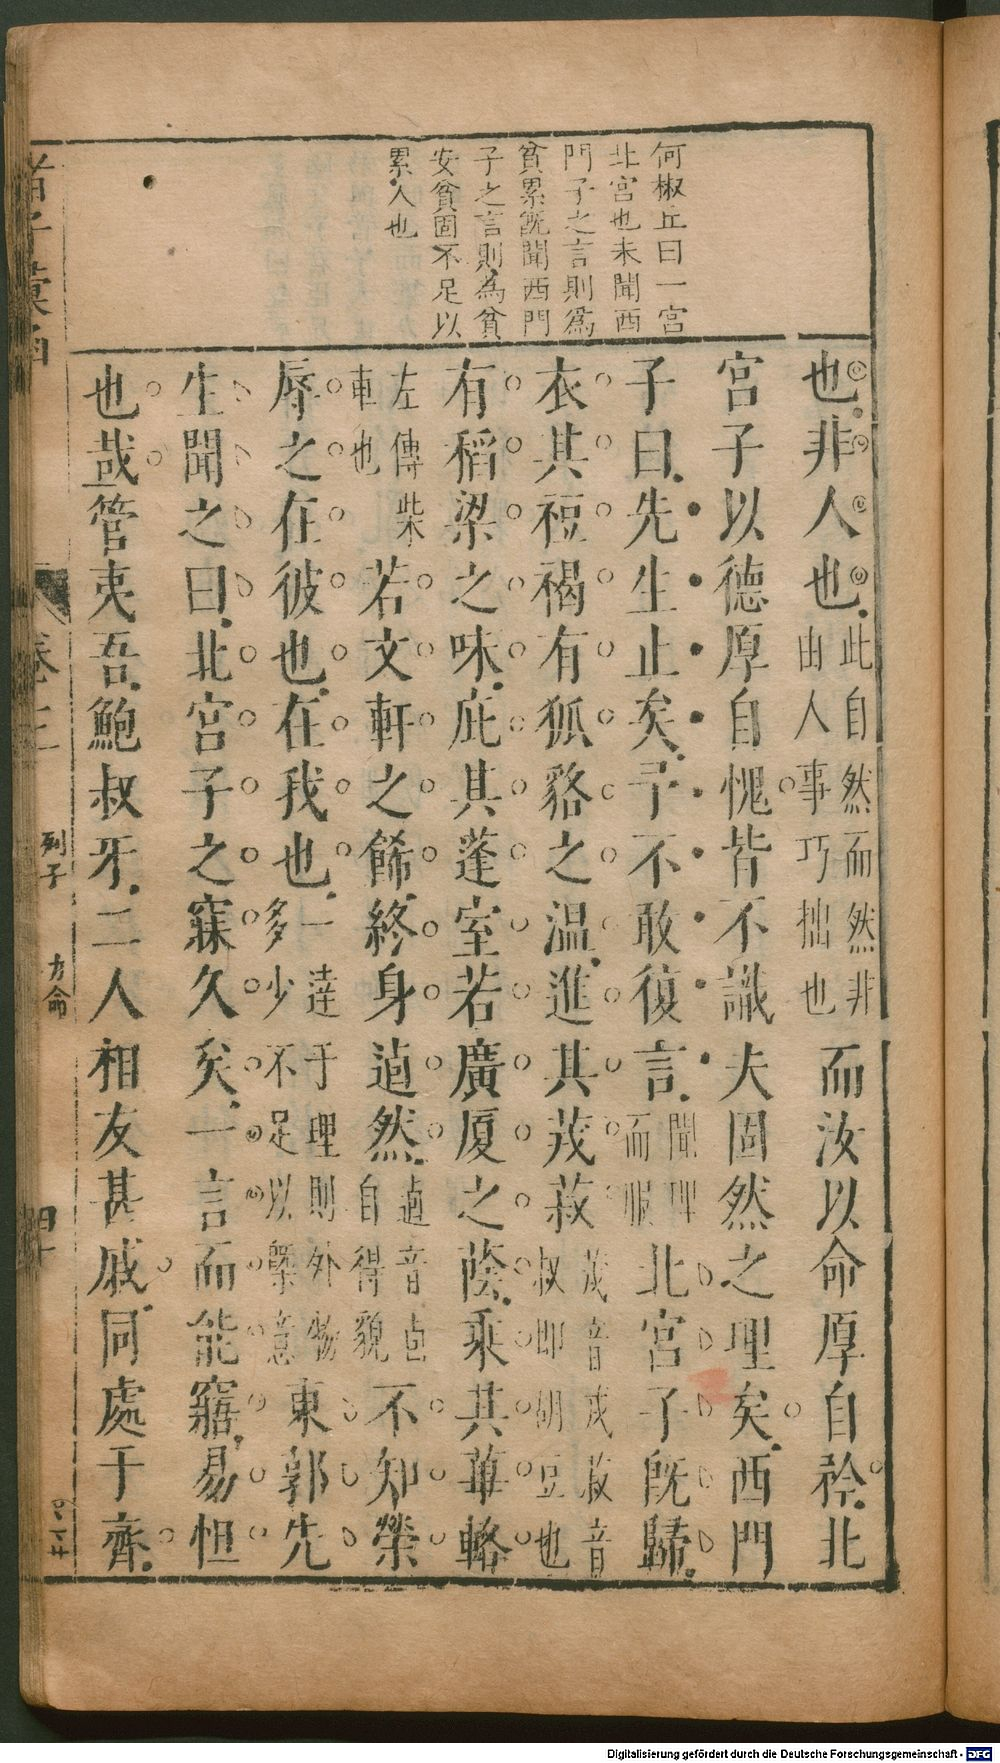 何椒丘曰一宮
北宮也未聞西
門子之言則爲
貧累既聞西門
子之言則為貧
安貧固不足以
累人也
也非人也此自然而然非由人事巧拙也而汝以命厚自矜北
宮子以德厚自愧皆不識夫固然之理矣西門
子曰先生止矣予不敢復言聞理而服北宮子既歸
衣其裋褐有狐貉之溫進其茙菽茙音戎菽音叔即胡豆也
有稻粱之味庇其蓬室若廣厦之蔭乘其蓽輅
左傳柴車也若文軒之餙終身逌然逌音卣自得貌不知榮
辱之在彼也在我也一達于理則外物多少不足以槩意東郭先
生聞之曰北宮子之寐久矣一言而能寤易怛
也哉管夷吾鮑叔牙二人相友甚戚同處于齊
諸子彙函
卷之
列子
力命
四十
Digitalisierung gefördert durch die Deutsche Forschungsgemeinschaft - DFG